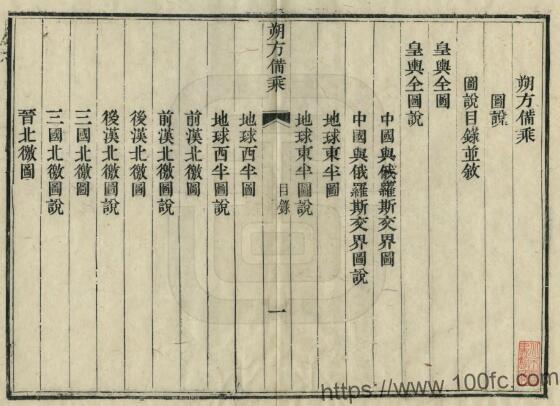 朔方備乘
圖說
圖說目錄並敘
皇輿全圖
皇輿全圖說
中國與俄羅斯交界圖
中國與俄羅斯交界圖說
地球東半圖
地球東半圖說
朔方備乘
目錄
一
地球西半圖
地球西半圖說
前漢北徼圖
前漢北徼圖說
後漢北徼圖
後漢北徼圖說
三國北徼圖
三國北徼圖說
晉北徼圖
https://www.100fc.com